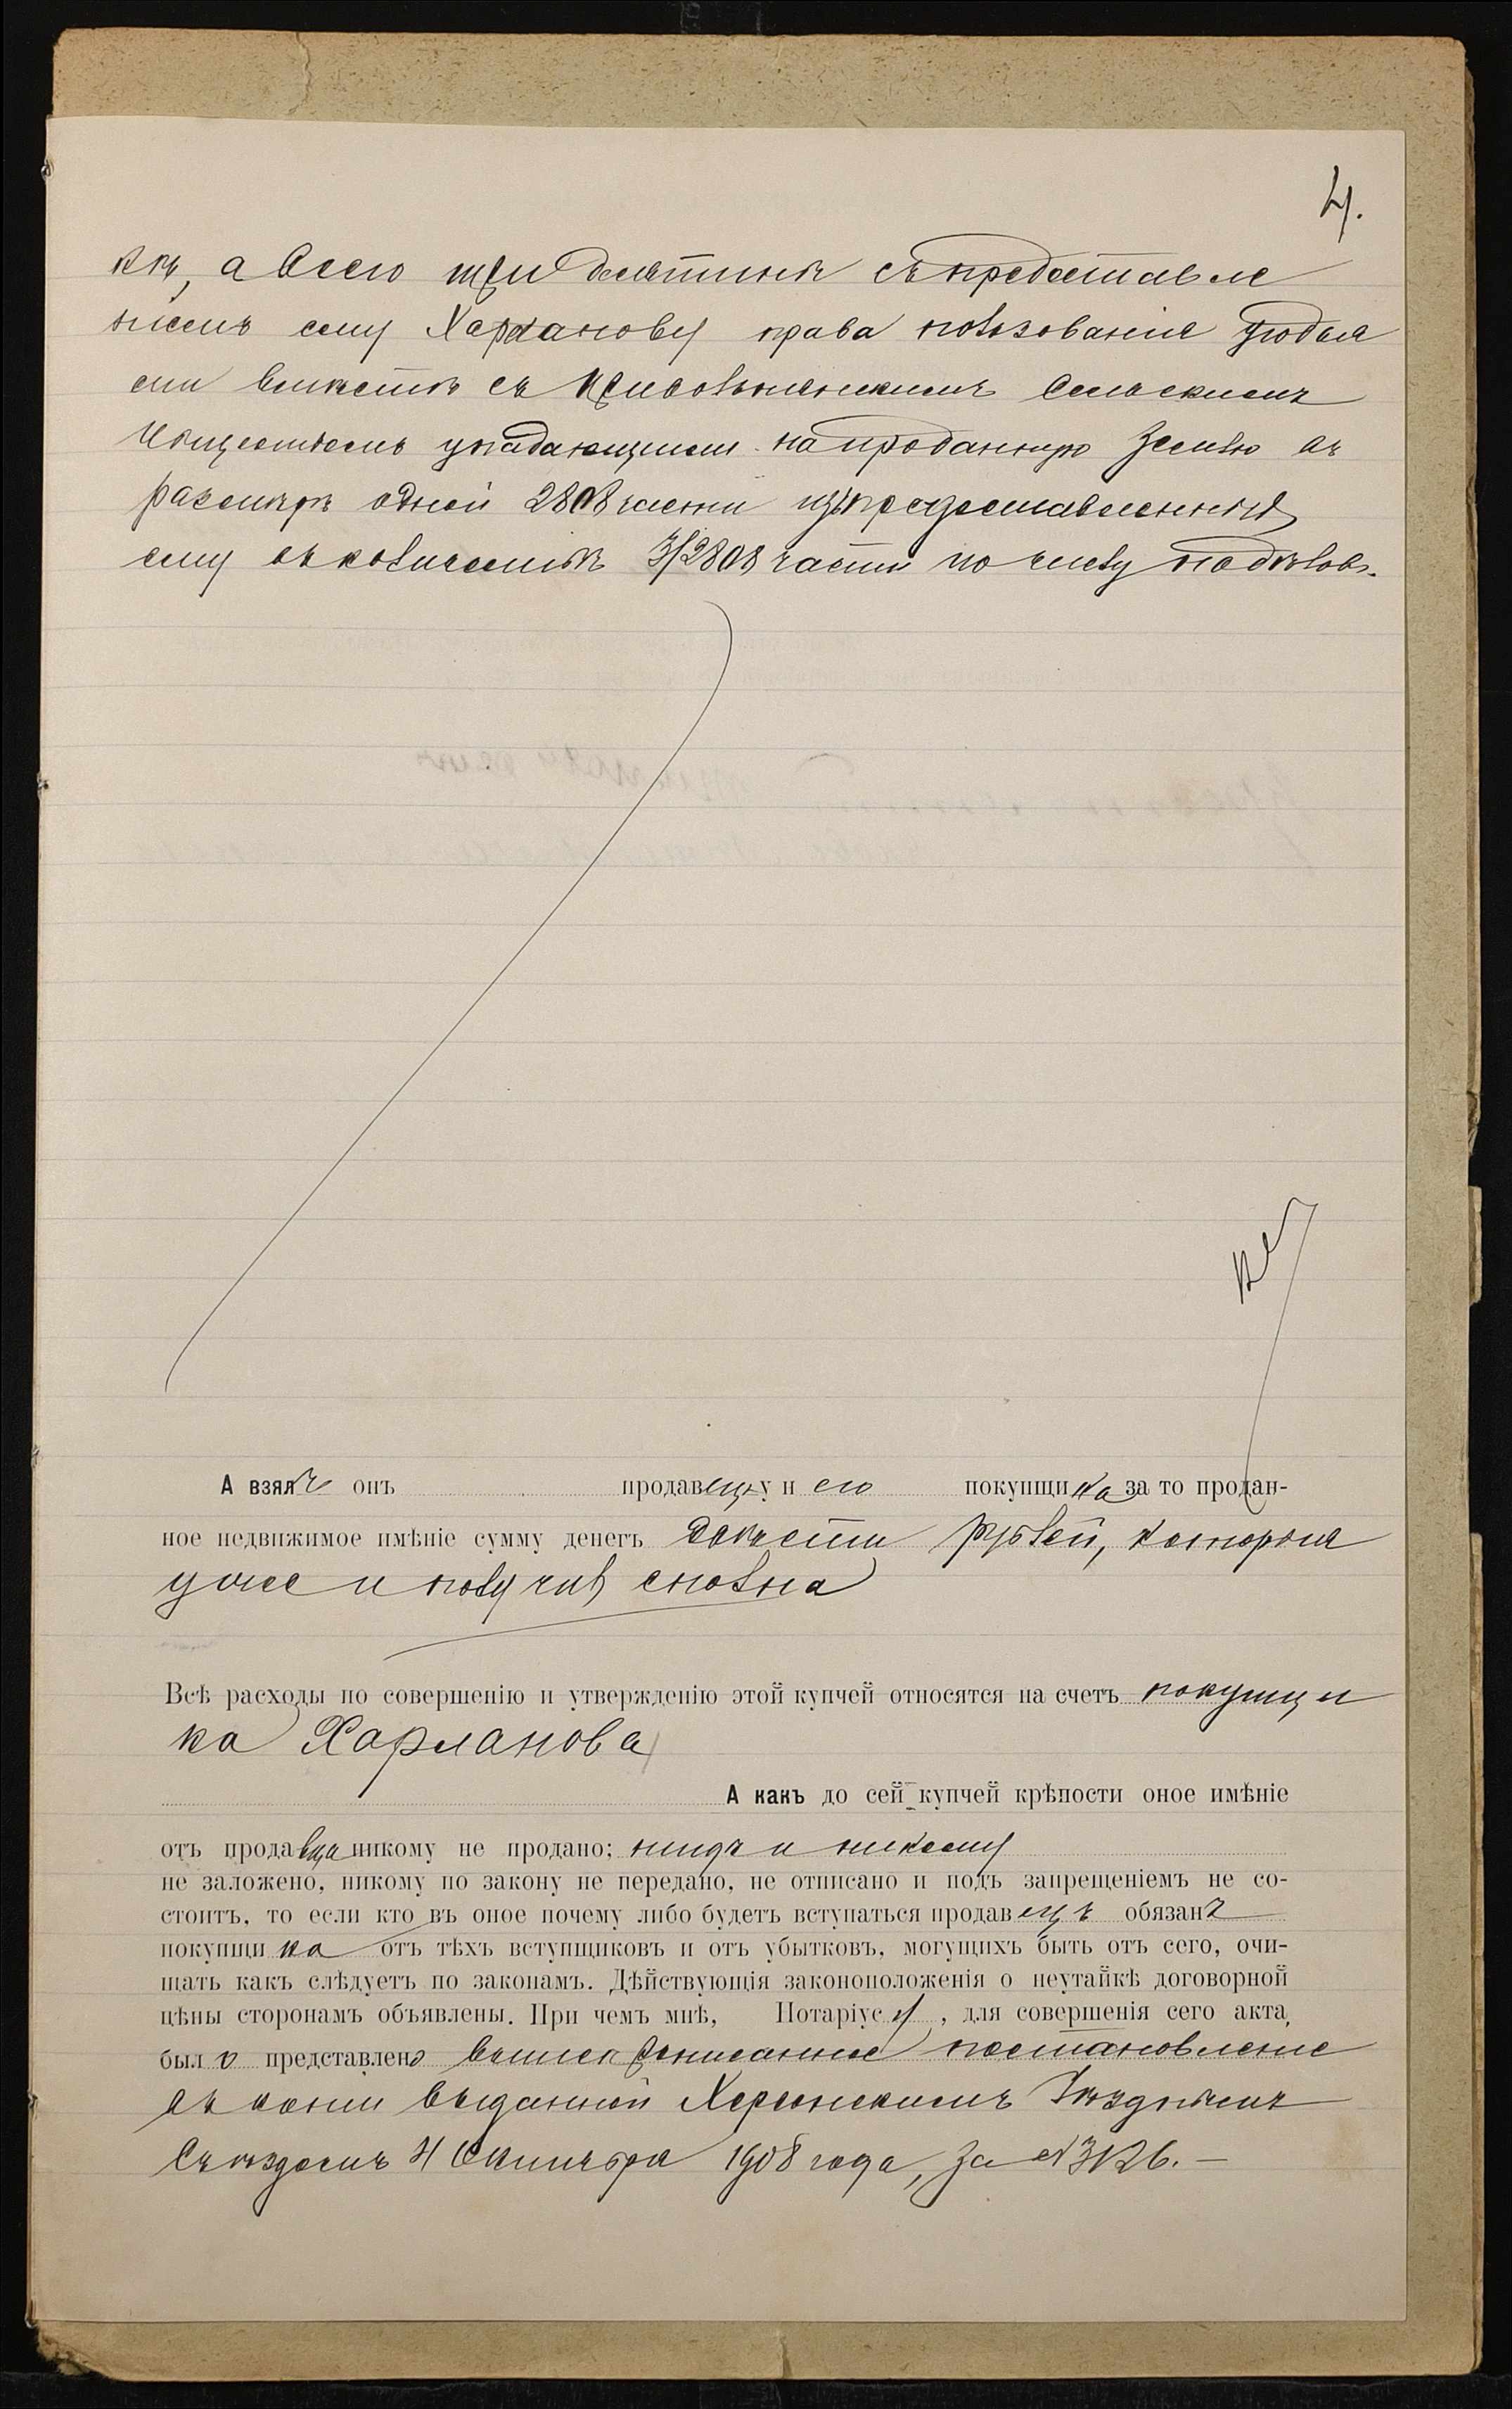 4.
кѣ, а всего три десятины съ предоставле
ніемъ ему Харланову права пользованія угодья
ми вмѣстѣ съ сельскимъ
Обществомъ упадающими на проданную землю въ
размѣрѣ одной 2808 части изъ предоставленныхъ
ему въ количествѣ 3/2808 части по числу надѣловъ.
А взялъ онъ продавецъ у н его покупщика за то продан-
ное недвижимое имѣніе сумму денегъ двѣсти рублей, которые
уже и получилъ сполна
Всѣ расходы по совершенію и утвержденію этой купчей относятся на счетъ покупщи
ка Харланова
А какъ до сей купчей крѣпости оное имѣніе
отъ продавца никому не продано; нигдѣ и никому
не заложено, никому по закону не передано, не отписано и подъ запрещеніемъ не со-
стоитъ, то если кто въ оное почему либо будетъ вступаться продавецъ обязанъ
покупщика отъ тѣхъ вступщиковъ и отъ убытковъ, могущихъ быть отъ сего, очи-
щать какъ слѣдуетъ по законамъ. Дѣйствующія законоположенія о неутайкѣ договорной
цѣны сторонамъ объявлены. При чемъ мнѣ, Нотаріусу, для совершенія сего акта,
было представлено вышепрописанное постановленіе
въ копіи выданной Херсонскимъ Уѣзднымъ
Съѣздомъ 4 Октября 1908 года, за № 3126. —